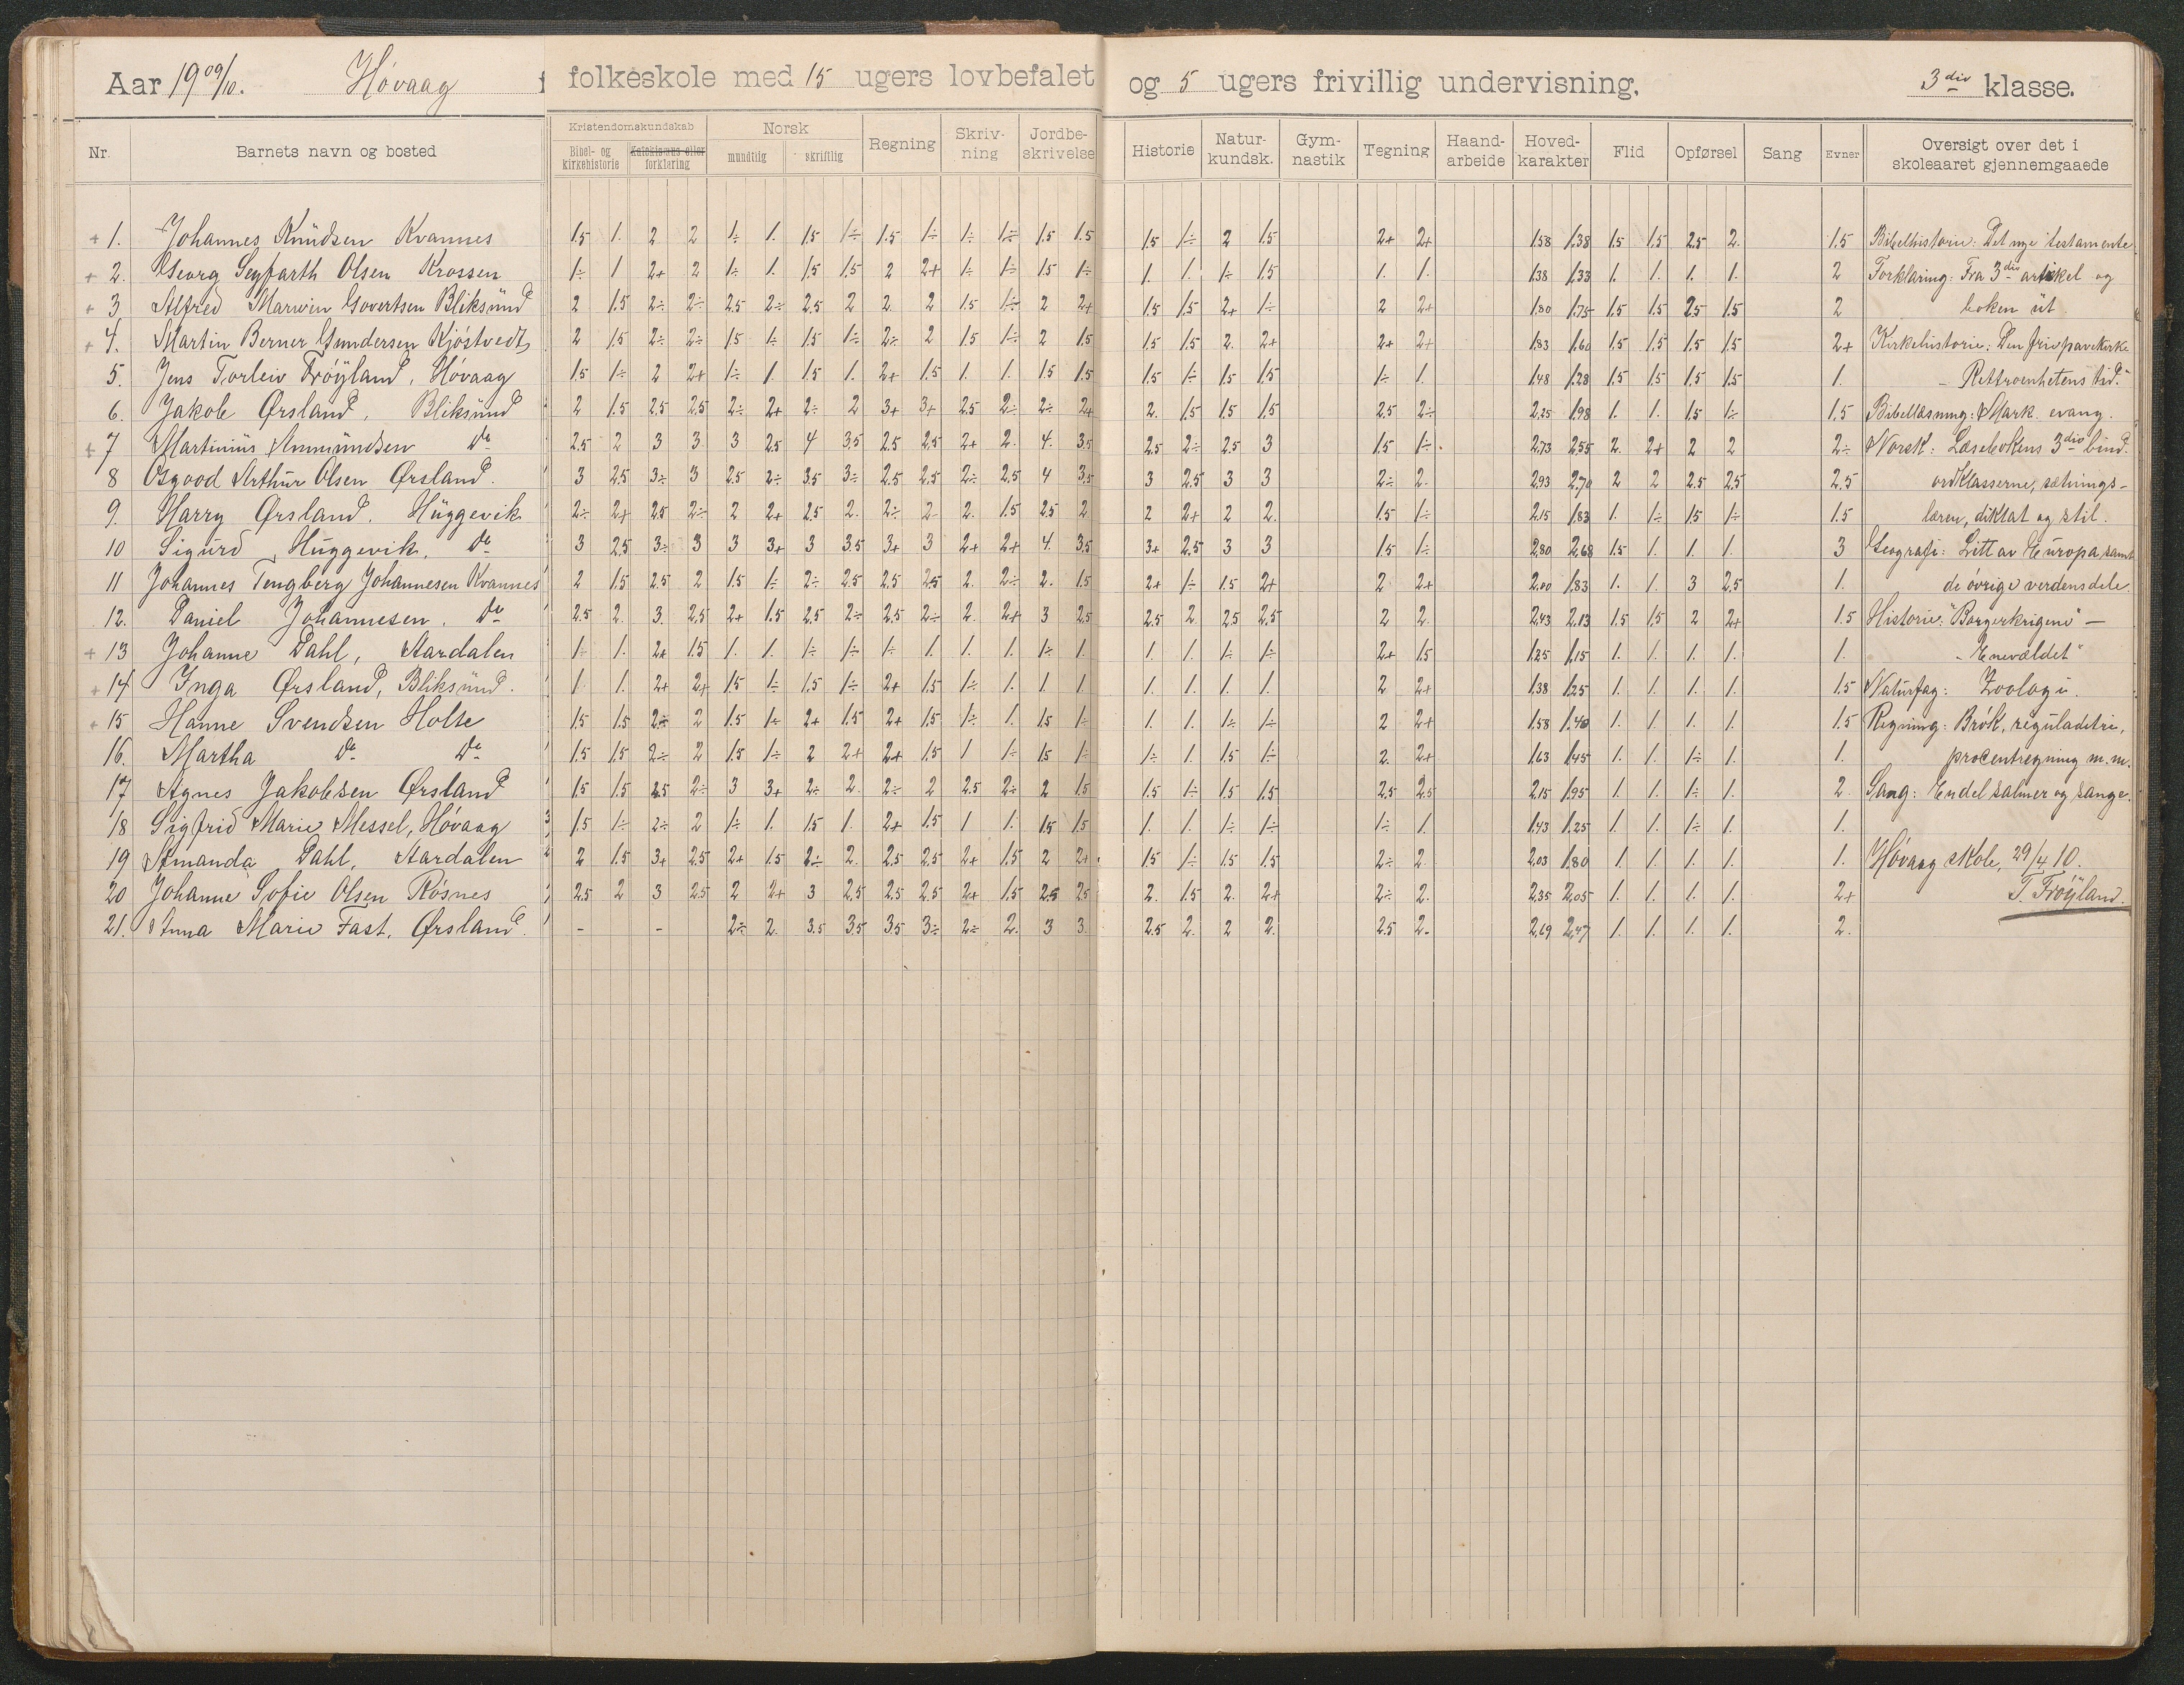 Aar 1909/10. Høvaag f folkeskole med 15 ugers lovbefalet og 5 ugers frivillig undervisning. 3die klasse.
Nr. Barnets navn og bosted Kristendomskundskab Bibel- og kirkehistorie Katekismus eller forklaring Norsk mundtlig skriftlig Regning Skriv-ning Jordbe-skrivelse Historie Natur-kundsk. Gym-nastik Tegning Haand-arbeide Hoved-karakter Flid Opførsel Sang Evner Oversigt over det i skoleaaret gjennemgaaede
+ 1. Johannes Knudsen Kvannes 1.5 1. 2 2 1÷ 1. 1.5 1÷ 1.5 1÷ 1÷ 1÷ 1.5 1.5 1.5 1÷ 2 1.5 2+ 2+ 1.58 1.38 1.5 1.5 2.5 2. 1.5 Bibelhistorie: Det nye testamente
+ 2. Georg Seyfarth Olsen Krossen 1÷ 1 2+ 2 1÷ 1. 1.5 1.5 2 2+ 1÷ 1÷ 1.5 1÷ 1. 1. 1÷ 1.5 1. 1. 1.38 1.33 1. 1. 1. 1. 2 Forklaring: Fra 3die artikel og
+ 3 Alfred Marwin Govertsen Bliksund 2 1.5 2÷ 2÷ 2.5 2÷ 2.5 2 2 2 1.5 1÷ 2 2+ 1.5 1.5 2+ 1÷ 2 2+ 1.80 1.75 1.5 1.5 2.5 1.5 2 boken ut
+ 4. Martin Berner Gundersen Kjøstvedt 2 1.5 2÷ 2÷ 1.5 1÷ 1.5 1÷ 2÷ 2 1.5 1÷ 2 1.5 1.5 1.5 2. 2+ 2+ 2+ 1.83 1.60 1.5 1.5 1.5 1.5 2+ Kirkehistorie: Den
5. Jens Torleiv Frøyland, Høvaag 1.5 1÷ 2 2+ 1÷ 1. 1.5 1. 2+ 1.5 1. 1. 1.5 1.5 1.5 1÷ 1.5 1.5 1÷ 1. 1.48 1.28 1.5 1.5 1.5 1.5 1. - Rettroenhetens tid."
6. Jakob Ørsland, Bliksund 2 1.5 2.5 2.5 2÷ 2+ 2÷ 2 3+ 3+ 2.5 2÷ 2÷ 2+ 2. 1.5 1.5 1.5 2.5 2÷ 2.25 1.98 1. 1. 1.5 1÷ 1.5 Bibellæsning: Mark. evang.
+ 7 Martinius Anmundsen do 2.5 2 3 3 3 2.5 4 3.5 2.5 2.5 2+ 2. 4. 3.5 2.5 2÷ 2.5 3 1.5 1÷. 2.73 2.55 2. 2+ 2 2 2÷ Norsk: Læsebokens 3die bind.
8 Osgood Arthur Olsen Ørsland. 3 2.5 3÷ 3 2.5 2÷ 3.5 3÷ 2.5 2.5 2÷ 2.5 4 3.5 3 2.5 3 3 2÷ 2. 2.93 2.70 2 2 2.5 2.5 2.5 ordklasserne, sætnings-
9. Harry Ørsland. Huggevik 2÷ 2+ 2.5 2÷ 2 2+ 2.5 2. 2÷ 2 2. 1.5 2.5 2 2 2+ 2 2. 1.5 1÷ 2.15 1.83 1. 1÷ 1.5 1÷ 1.5 læren, diktat og stil.
10 Sigurd Huggevik, do 3 2.5 3÷ 3 3 3+ 3 3.5 3+ 3 2+ 2+ 4. 3.5 3+ 2.5 3 3 1.5 1÷ 2.80 2.68 1.5 1. 1. 1. 3 Geografi: Litt av Europa, samt
11 Johannes Tengberg Johannesen Kvannes 2 1.5 2.5 2 1.5 1÷ 2÷ 2.5 2.5 2.5 2. 2÷ 2. 1.5 2+ 1÷ 1.5 2+ 2 2+ 2.00 1.83 1. 1. 3 2.5 1. de øvrige verdensdele.
12. Daniel Johannesen. do 2.5 2. 3. 2.5 2+ 1.5 2.5 2÷ 2.5 2÷ 2. 2+ 3 2.5 2.5 2 2.5 2.5 2 2. 2.43 2.13 1.5 1.5 2 2+ 1.5 Historie: "Borgerkrigene" -
+ 13 Johanne Dahl, Aardalen 1÷ 1. 2+ 1.5 1. 1. 1÷ 1÷ 1÷ 1. 1. 1. 1÷ 1. 1. 1. 1÷ 1÷ 2+ 1.5 1.25 1.15 1. 1. 1. 1. 1. - Enevældet"
+ 14 Inga Ørsland, Bliksund. 1 1. 2+ 2+ 1.5 1÷ 1.5 1÷ 2+ 1.5 1÷ 1. 1. 1 1. 1. 1. 1. 2 2+ 1.38 1.25 1. 1. 1. 1. 1.5 Naturfag: Zoologi.
+ 15 Hanne Svendsen Holte 1.5 1.5 2÷ 2 1.5 1÷ 2+ 1.5 2+ 1.5 1÷ 1. 1.5 1÷ 1. 1. 1÷ 1÷ 2 2+ 1.58 1.40 1. 1. 1. 1. 1.5 Regning: Brøk, reguladetri,
16. Martha do do 1.5 1.5 2÷ 2 1.5 1÷ 2 2+ 2+ 1.5 1 1÷ 1.5 1÷ 1÷ 1. 1.5 1÷ 2. 2+ 1.63 1.45 1. 1. 1÷ 1. 1. procentregning m.m.
17 Agnes Jakobsen Ørsland 1.5 1.5 2.5 2÷ 3 3+ 2÷ 2. 2÷ 2 2.5 2÷ 2 1.5 1.5 1÷ 1.5 1.5 2.5 2.5 2.15 1.95 1. 1. 1÷ 1. 2. Sang: Endel salmer og sange.
18 Sigfrid Marie Messel, Høvaag 1.5 1÷ 2÷ 2 1÷ 1. 1.5 1. 2+ 1.5 1 1. 1.5 1.5 1. 1. 1÷ 1÷ 1÷ 1. 1.43 1.25 1. 1. 1÷ 1. 1.
19 Amanda Dahl, Aardalen 2 1.5 3+ 2.5 2+ 1.5 2÷ 2. 2.5 2.5 2+ 1.5 2 2+ 1.5 1÷ 1.5 1.5 2÷ 2. 2.03 1.80 1. 1. 1. 1. 1. Høvaag skole, 29/4 10.
20 Johanne Sofie Olsen Røsnes 2.5 2 3 2.5 2 2+ 3 2.5 2.5 2.5 2+ 1.5 2.5 2.5 2. 1.5 2. 2+ 2÷ 2. 2.35 2.05 1. 1. 1. 1. 2+ T. Frøyland.
21. Anna Marie Fast, Ørsland. - - 2÷ 2. 3.5 3.5 3.5 3÷ 2÷ 2. 3 3. 2.5 2. 2 2. 2.5 2. 2.69 2.47 1. 1. 1. 1. 2.